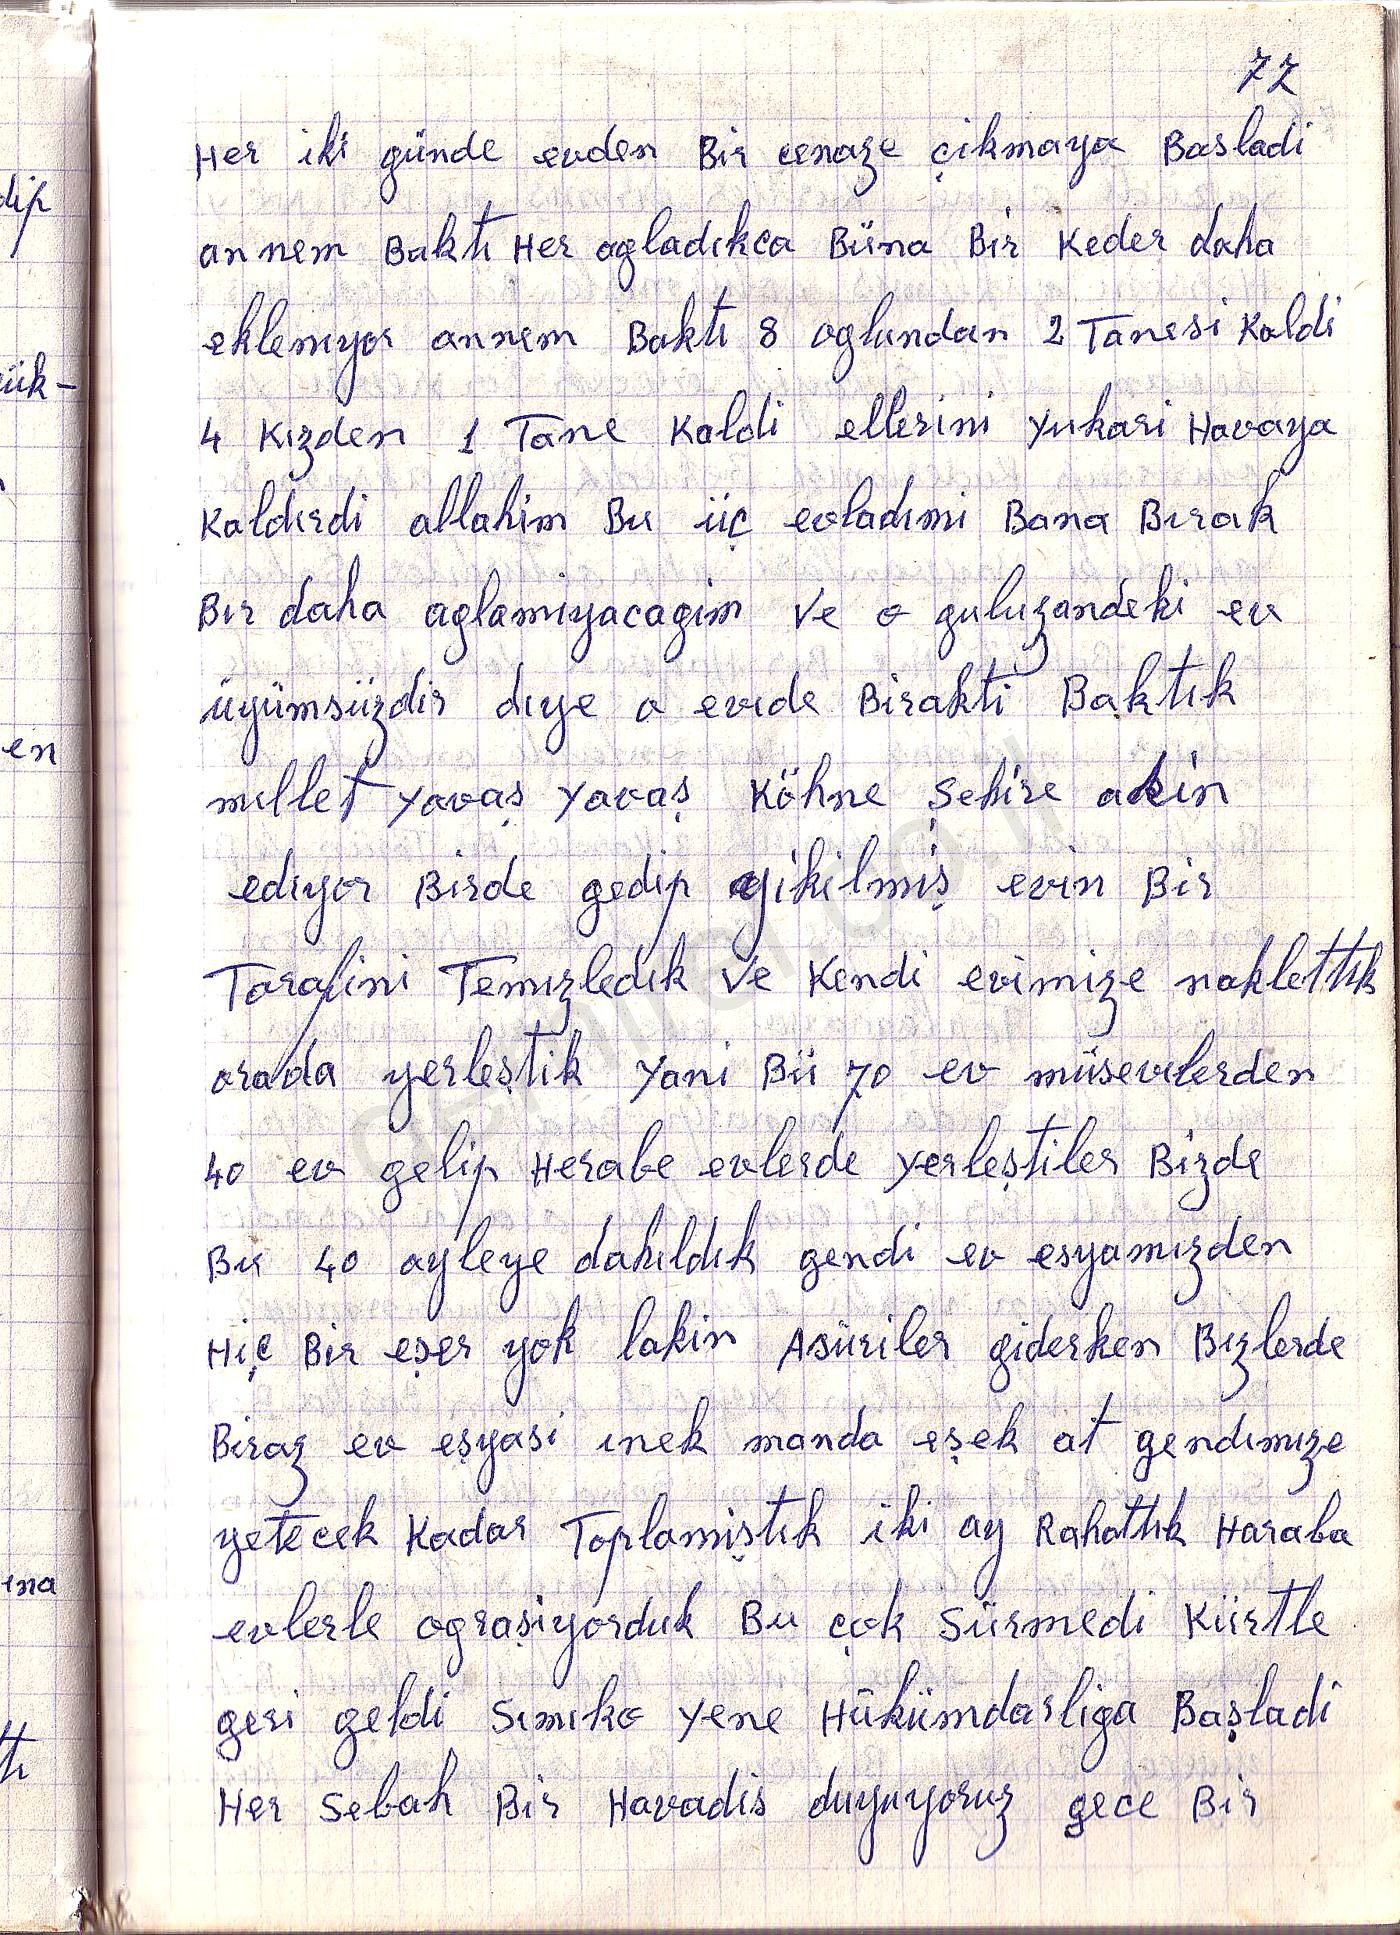 72
Her iki günde evden Bir cenaze çikmaya Basladi
annem Baktı Her agladıkca Büna Bir Keder daha
eklenıyor annem Baktı 8 oglundan 2 Tanesi Kaldi
4 Kızden 1 Tane Kaldi ellerini Yukari Havaya
Kaldırdi allahim Bu üç evladımi Bana Bırak
Bır daha aglamiyacagim Ve o guluzandeki ev
üyümsüzdir dıye o evıde Birakti Baktık
mıllet Yavaş Yavaş Köhne Şehire akin
edıyor Bizde gedip yikilmiş evin Bir
Tarafini Temızledık Ve Kendi evimize naklettık
orada yerleştik Yani Bü 70 ev müsevılerden
40 ev gelip Herabe evlerde Yerleştiler Bizde
Bu 40 ayleye dahıldık gendi ev esyamızden
Hiç Bir eşer yok lakin Asüriler giderken Bızlerde
Biraz ev eşyasi ınek manda eşek at gendımıze
yetecek Kadar Toplamiştık iki ay Rahattık Haraba
evlerle ograşiyorduk Bu çok Sürmedi Kürtle
geri geldi Sımıko Yene Hükümdarliga Başladi
Her Sebah Bir Havadis duyuyoruz gece Bir
dip
ük-
en
ına
tı
demirel.co.il